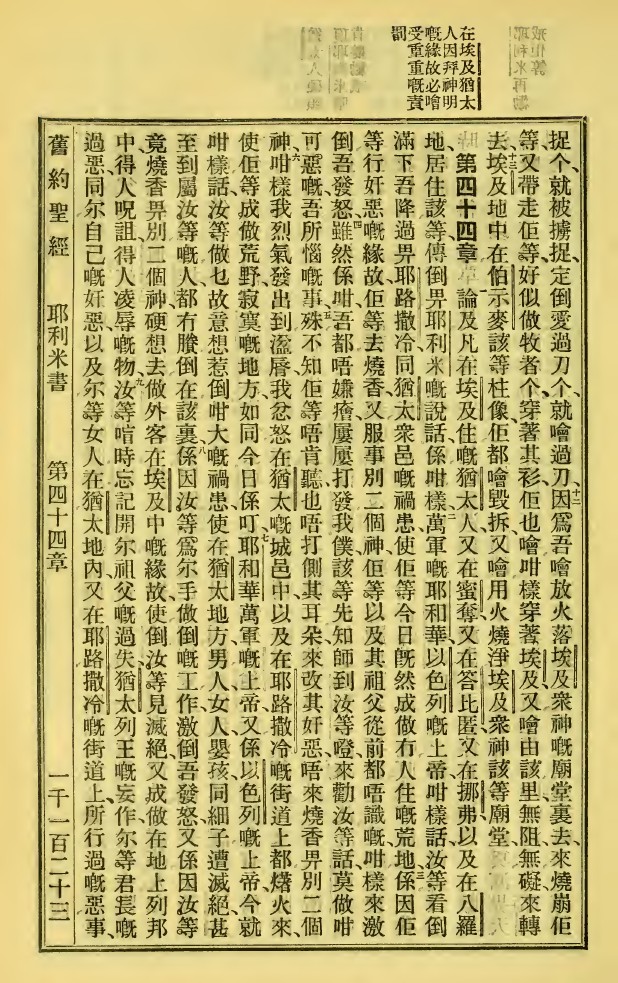 在埃及猶太
人因拜神明
嘅緣故必噲
受重重嘅責
罰
捉个、就被擄捉、定倒愛過刀个、就噲過刀、十二因爲吾噲放火落埃及衆神嘅廟堂裏去、來燒崩佢
等、又帶走佢等、好似做牧者个、穿著其衫、佢也噲咁樣穿著埃及、又噲由該里無阻無礙來轉
去、十三埃及地中在伯示麥該等柱像、佢都噲毀拆、又噲用火燒淨埃及衆神該等廟堂、
第四十四章 一論及凡在埃及住嘅猶太人、又在蜜奪、又在答比匿、又在挪弗、以及在八羅
地居住該等、傳倒畀耶利米嘅說話、係咁樣、二萬軍嘅耶和華、以色列嘅上帝咁樣話、汝等看倒
滿下吾降過畀耶路撒冷同猶太衆邑嘅禍患、使佢等今日既然成做冇人住嘅荒地、三係因佢
等行奸惡嘅緣故、佢等去燒香、又服事別二個神、佢等以及其祖父從前都唔識嘅、咁樣來激
倒吾發怒、四雖然係咁、吾都唔嫌瘡屢屢打發我僕該等先知師到汝等𠊎來勸汝等話、莫做咁
可惡嘅吾所惱嘅事、五殊不知佢等唔肯聽、也唔打側其耳朵、來改其奸惡、唔來燒香畀別二個
神、六咁樣我烈氣發出到溢唇、我忿怒在猶太嘅城邑中、以及在耶路撒冷嘅街道上都㷫火來、
使佢等成做荒野寂寞嘅地方、如同今日係叮、七耶和華萬軍嘅上帝、又係以色列嘅上帝、今就
咁樣話、汝等做乜故意想惹倒咁大嘅禍患、使在猶太地方、男人、女人、嬰孩、同細子遭滅絕、甚
至到屬汝等嘅人、都冇賸倒在該裏、八係因汝等爲尔手做倒嘅工作、激倒吾發怒、又係因汝等
竟燒香畀別二個神、硬想去做外客在埃及中嘅緣故、使倒汝等見滅絕、又成做在地上列邦
中得人呪詛、得人凌辱嘅物、九汝等喑時忘記開尔祖父嘅過失、猶太列王嘅妄作、尔等君長嘅
過惡、同尔自己嘅奸惡、以及尔等女人在猶太地內、又在耶路撒冷嘅街道上、所行過嘅惡事、
舊約聖經 耶利米書 第四十四章 一千一百二十三